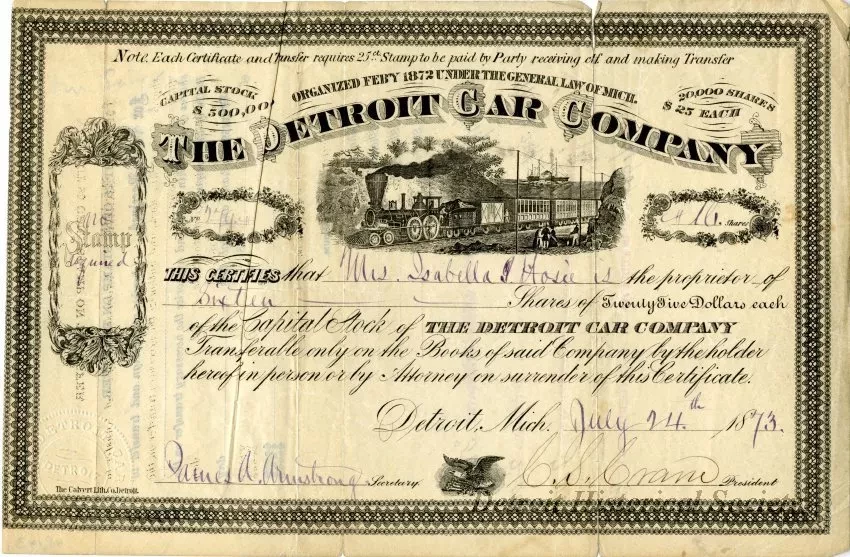 Note. Each Certificate and Transfer requires 25 ct. Stamp to be paid by Party receiving ctf. and making Transfer
CAPITAL STOCK
$ 500,00
ORGANIZED FEB'Y 1872 UNDER THE GENERAL LAW OF MICH.
20,000 SHARES
$ 25 EACH
THE DETROIT CAR COMPANY
No
16 Shares
No
Stamp
required
THIS CERTIFIES that Mrs. Isabella Hosie is the proprietor of
Sixteen Shares of Twenty Five Dollars each
of the Capital Stock of THE DETROIT CAR COMPANY
Transferable only on the Books of said Company by the holder
hereof in person or by Attorney on surrender of this Certificate.
Detroit, Mich. July 24th 1873.
James A. Armstrong Secretary.
C. S. Crane President
The Calvert Lith. Co. Detroit.
Detroit Historical Society